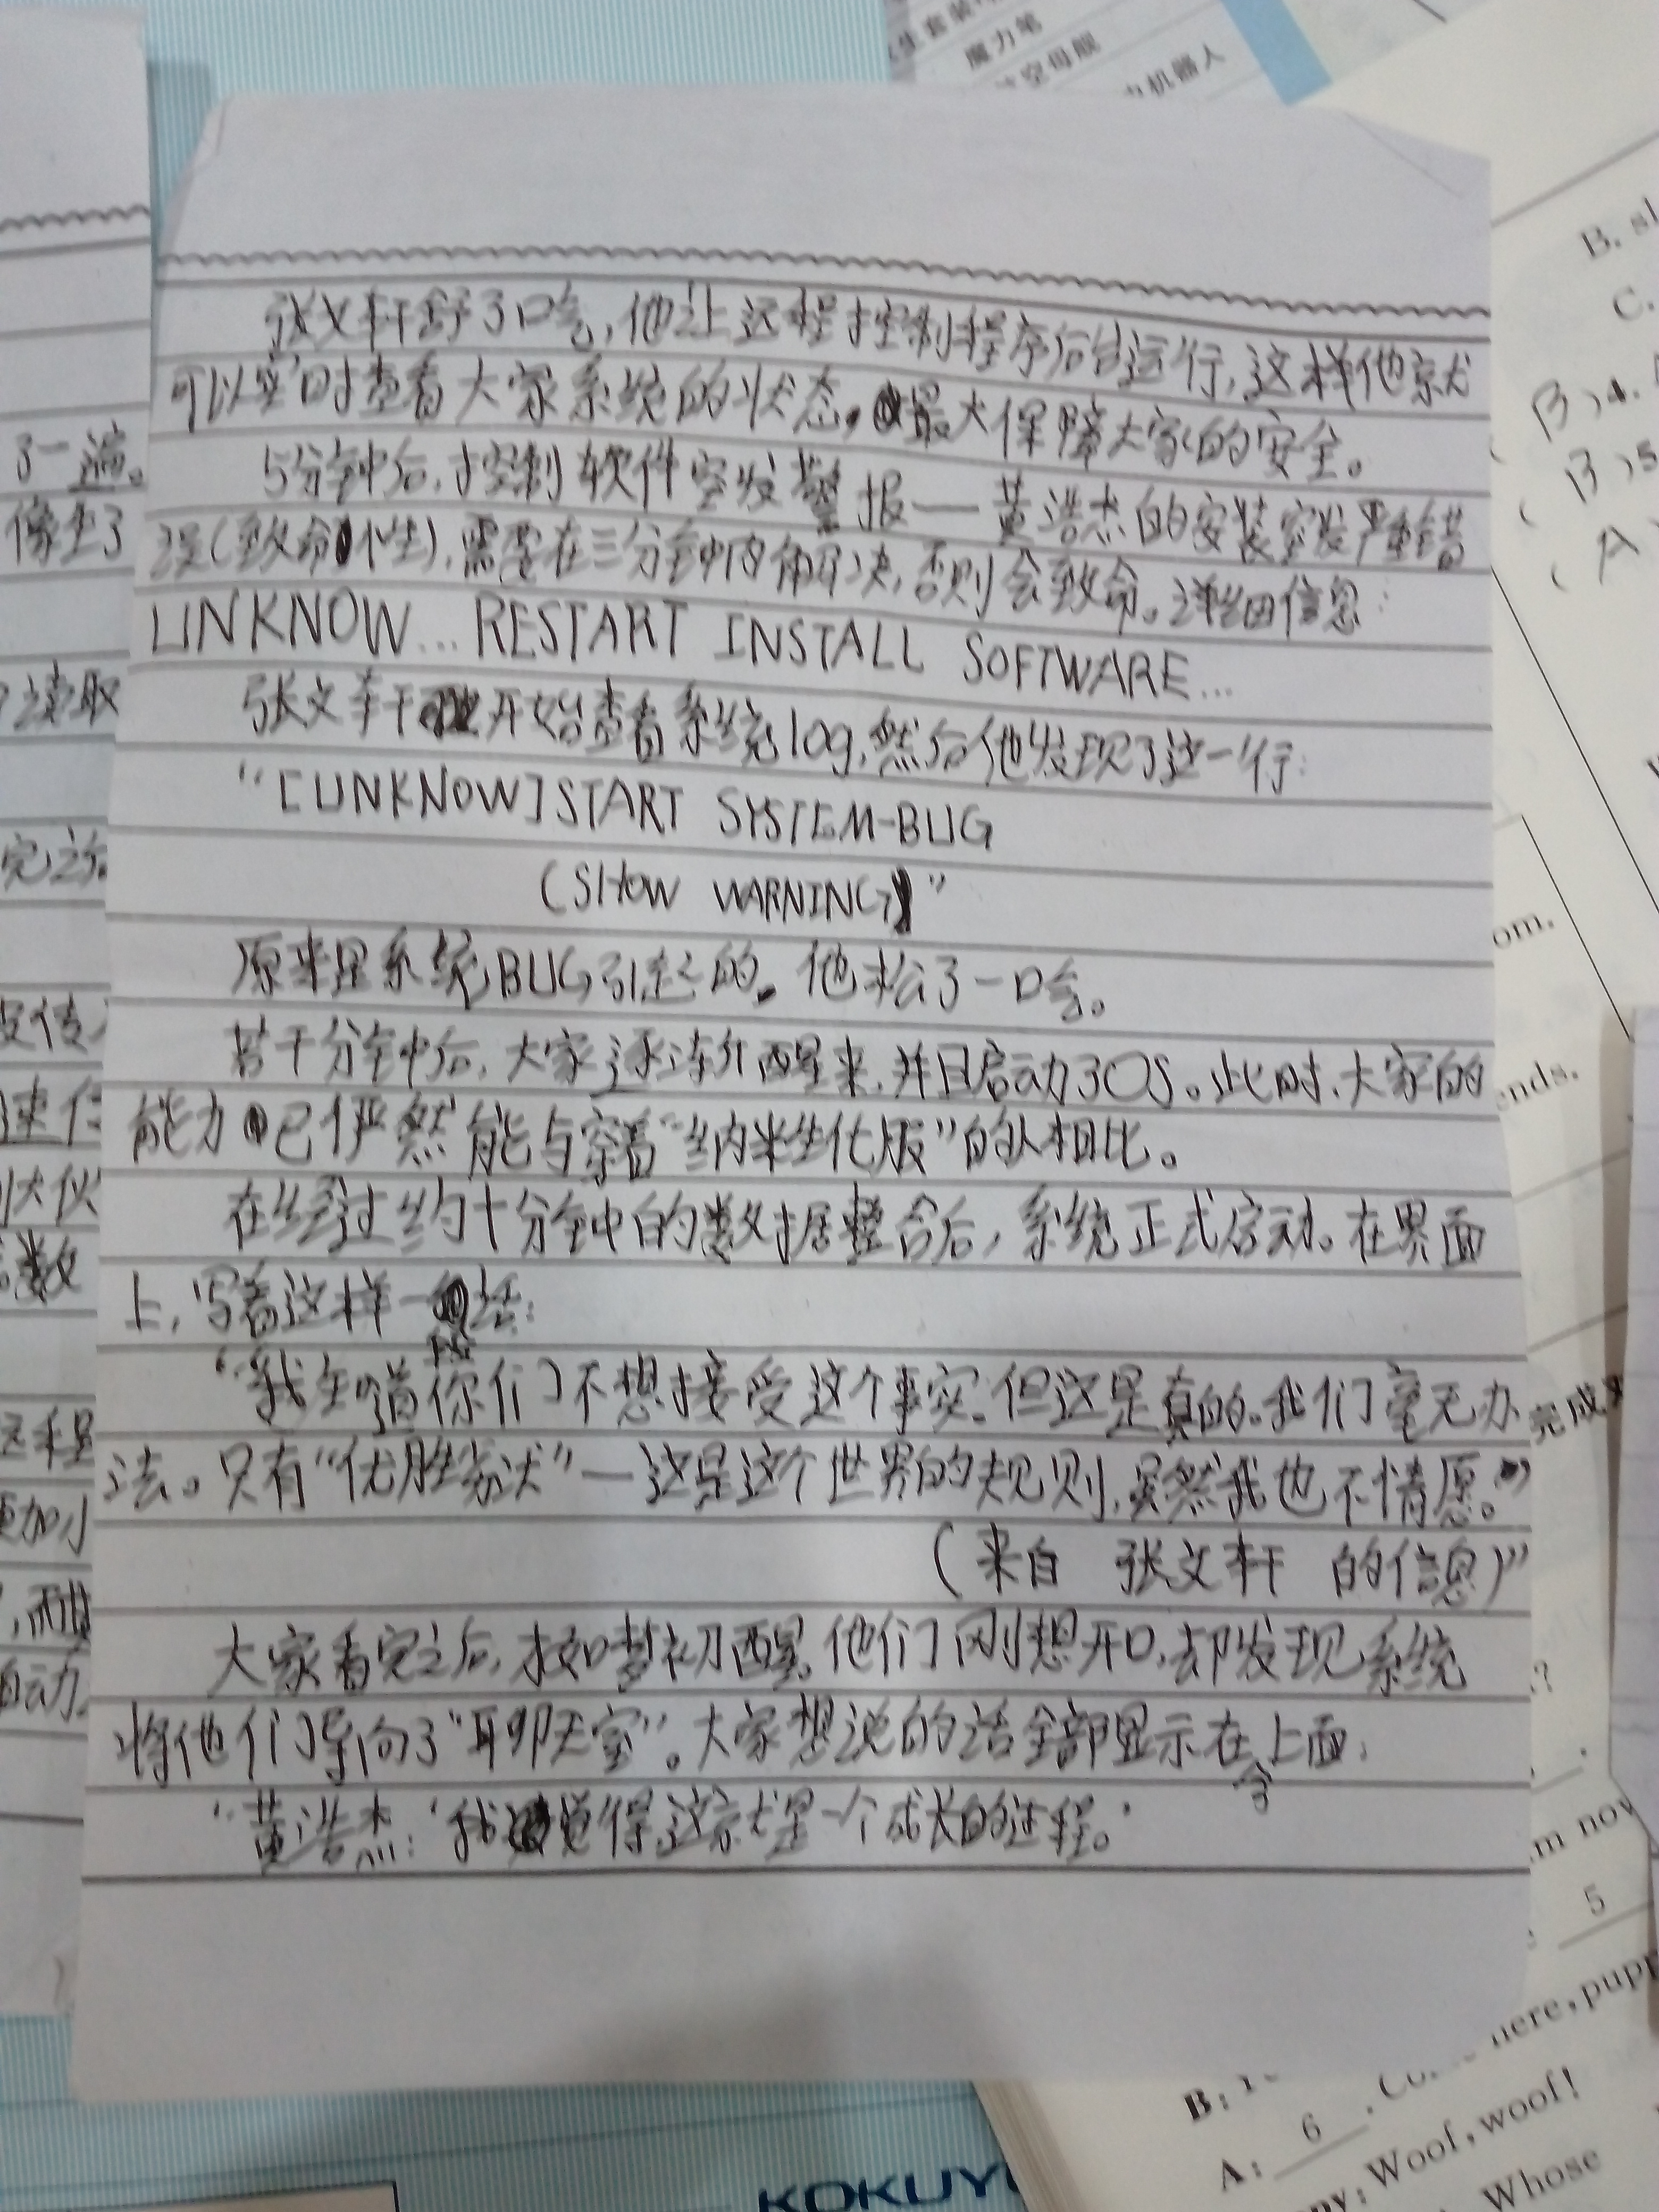 生套装
魔力笔
空母舰
机器人
张文轩舒了口气,他让远程控制程序后台运行,这样他就
可以实时查看大家系统的状态,最大保障大家的安全。
5分钟后,控制软件突发警报——黄浩杰的安装突发严重错
误(致命性),需要在三分钟内解决,否则会致命。详细信息:
UNKNOW... RESTART INSTALL SOFTWARE...
张文轩开始查看系统log,然后他发现了这一行:
“[UNKNOW]START SYSTEM-BUG
(SHOW WARNING)”
原来是系统BUG引起的。他松了一口气。
若干分钟后,大家逐渐醒来,并且启动30S。此时,大家的
能力已俨然能与穿着“纳米生化服”的人相比。
在经过约十分钟的数据整合后,系统正式启动。在界面
上,写着这样一段话:
“我知道你们不想接受这个事实,但这是真的。我们毫无办
法。只有“优胜劣汰”—这是这个世界的规则,虽然我也不情愿。”
(来自 张文轩 的信息)”
大家看完之后,才如梦初醒,他们刚想开口,却发现系统
将他们导向了“聊天室”。大家想说的话全部显示在上面:
“黄浩杰:‘我觉得,这就是一个成长的过程。’
了一遍。
像生了
读取
完之后
大伙
数
远程
更加小
自动
B.
C.
B)4.
B)5
A
om.
ends.
完成
?
m now
5
here, pupp
B:
A: 6 . Co
ny: Woof, woof!
Whose
KOKUY